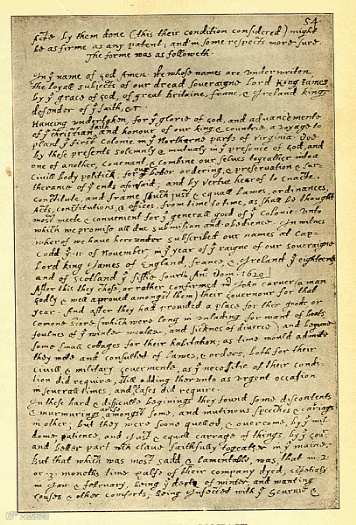 54
Acte by them done (this their condition considered) might
be as firme as any patent; and in some respects more sure.
The forme was as followeth.
In yͤ name of god Amen. We whose names are underwriten,
the loyall subjects of our dread soveraigne Lord King James
by yͤ grace of god, of great britaine, franc, & Ireland king,
defender of yͤ faith, &c
Haveing undertaken, for yͤ glorie of god, and advancemente
of yͤ christian faith and honour of our king & countrie, a voyage to
plant yͤ first colonie in yͤ Northerne parts of Virginia. Doe
by these presents solemnly & mutualy in yͤ presence of god, and
one of another, covenant, & combine our selves togeather into a
Civill body politick; for our better ordering, & preservation & fur-
therance of yͤ ends aforesaid; and by vertue hearof to enacte,
constitute, and frame such just & equall Lawes, ordinances,
Acts, constitutions, & offices, from time to time, as shall be thought
most meete & convenient for yͤ generall good of yͤ colonie: unto
which we promise all due submission and obedience. In witnes
wherof we have here under subscribed our names at Cap-
Codd yͤ ·11· of November, in yͤ year of yͤ raigne of our soveraigne
Lord king James of England, france, & Ireland yͤ eighteenth
and of Scotland yͤ fiftie fourth. Ano Dom. 1620.
After this they chose, or rather confirmed mͬ John carver (a man
godly & well approved amongst them) their Governour for that
year. And after they had provided a place for their goods, or
comone store, (which were long in unlading for want of boats,
foulnes of yͤ winter weather, and sicknes of diverce) and begune
some small cottages for their habitation; as time would admitte
they mette and consulted of lawes, & orders, both for their
civill & military govermente, as yͤ necessitie of their condi-
tion did require, still adding therunto as urgent occasion
in severall times, and as cases did require.
In these hard & difficulte beginings they found some discontents
& murmurings arise amongst some, and mutinous speeches & carriags
in other; but they were soone quelled, & overcome, by yͤ wis-
dome, patience, and just & equall carrage of things, by yͤ gov͏ͬ
and better part wͨͪ clave faithfully togeather in yͤ maine.
But that which was most sadd, & lamentable, was, that in 2·
or ·3· moneths time halfe of their company dyed, espetialy
in Jan: & february, being yͤ depth of winter, and wanting
houses & other comforts; being Infected with yͤ scurvie &